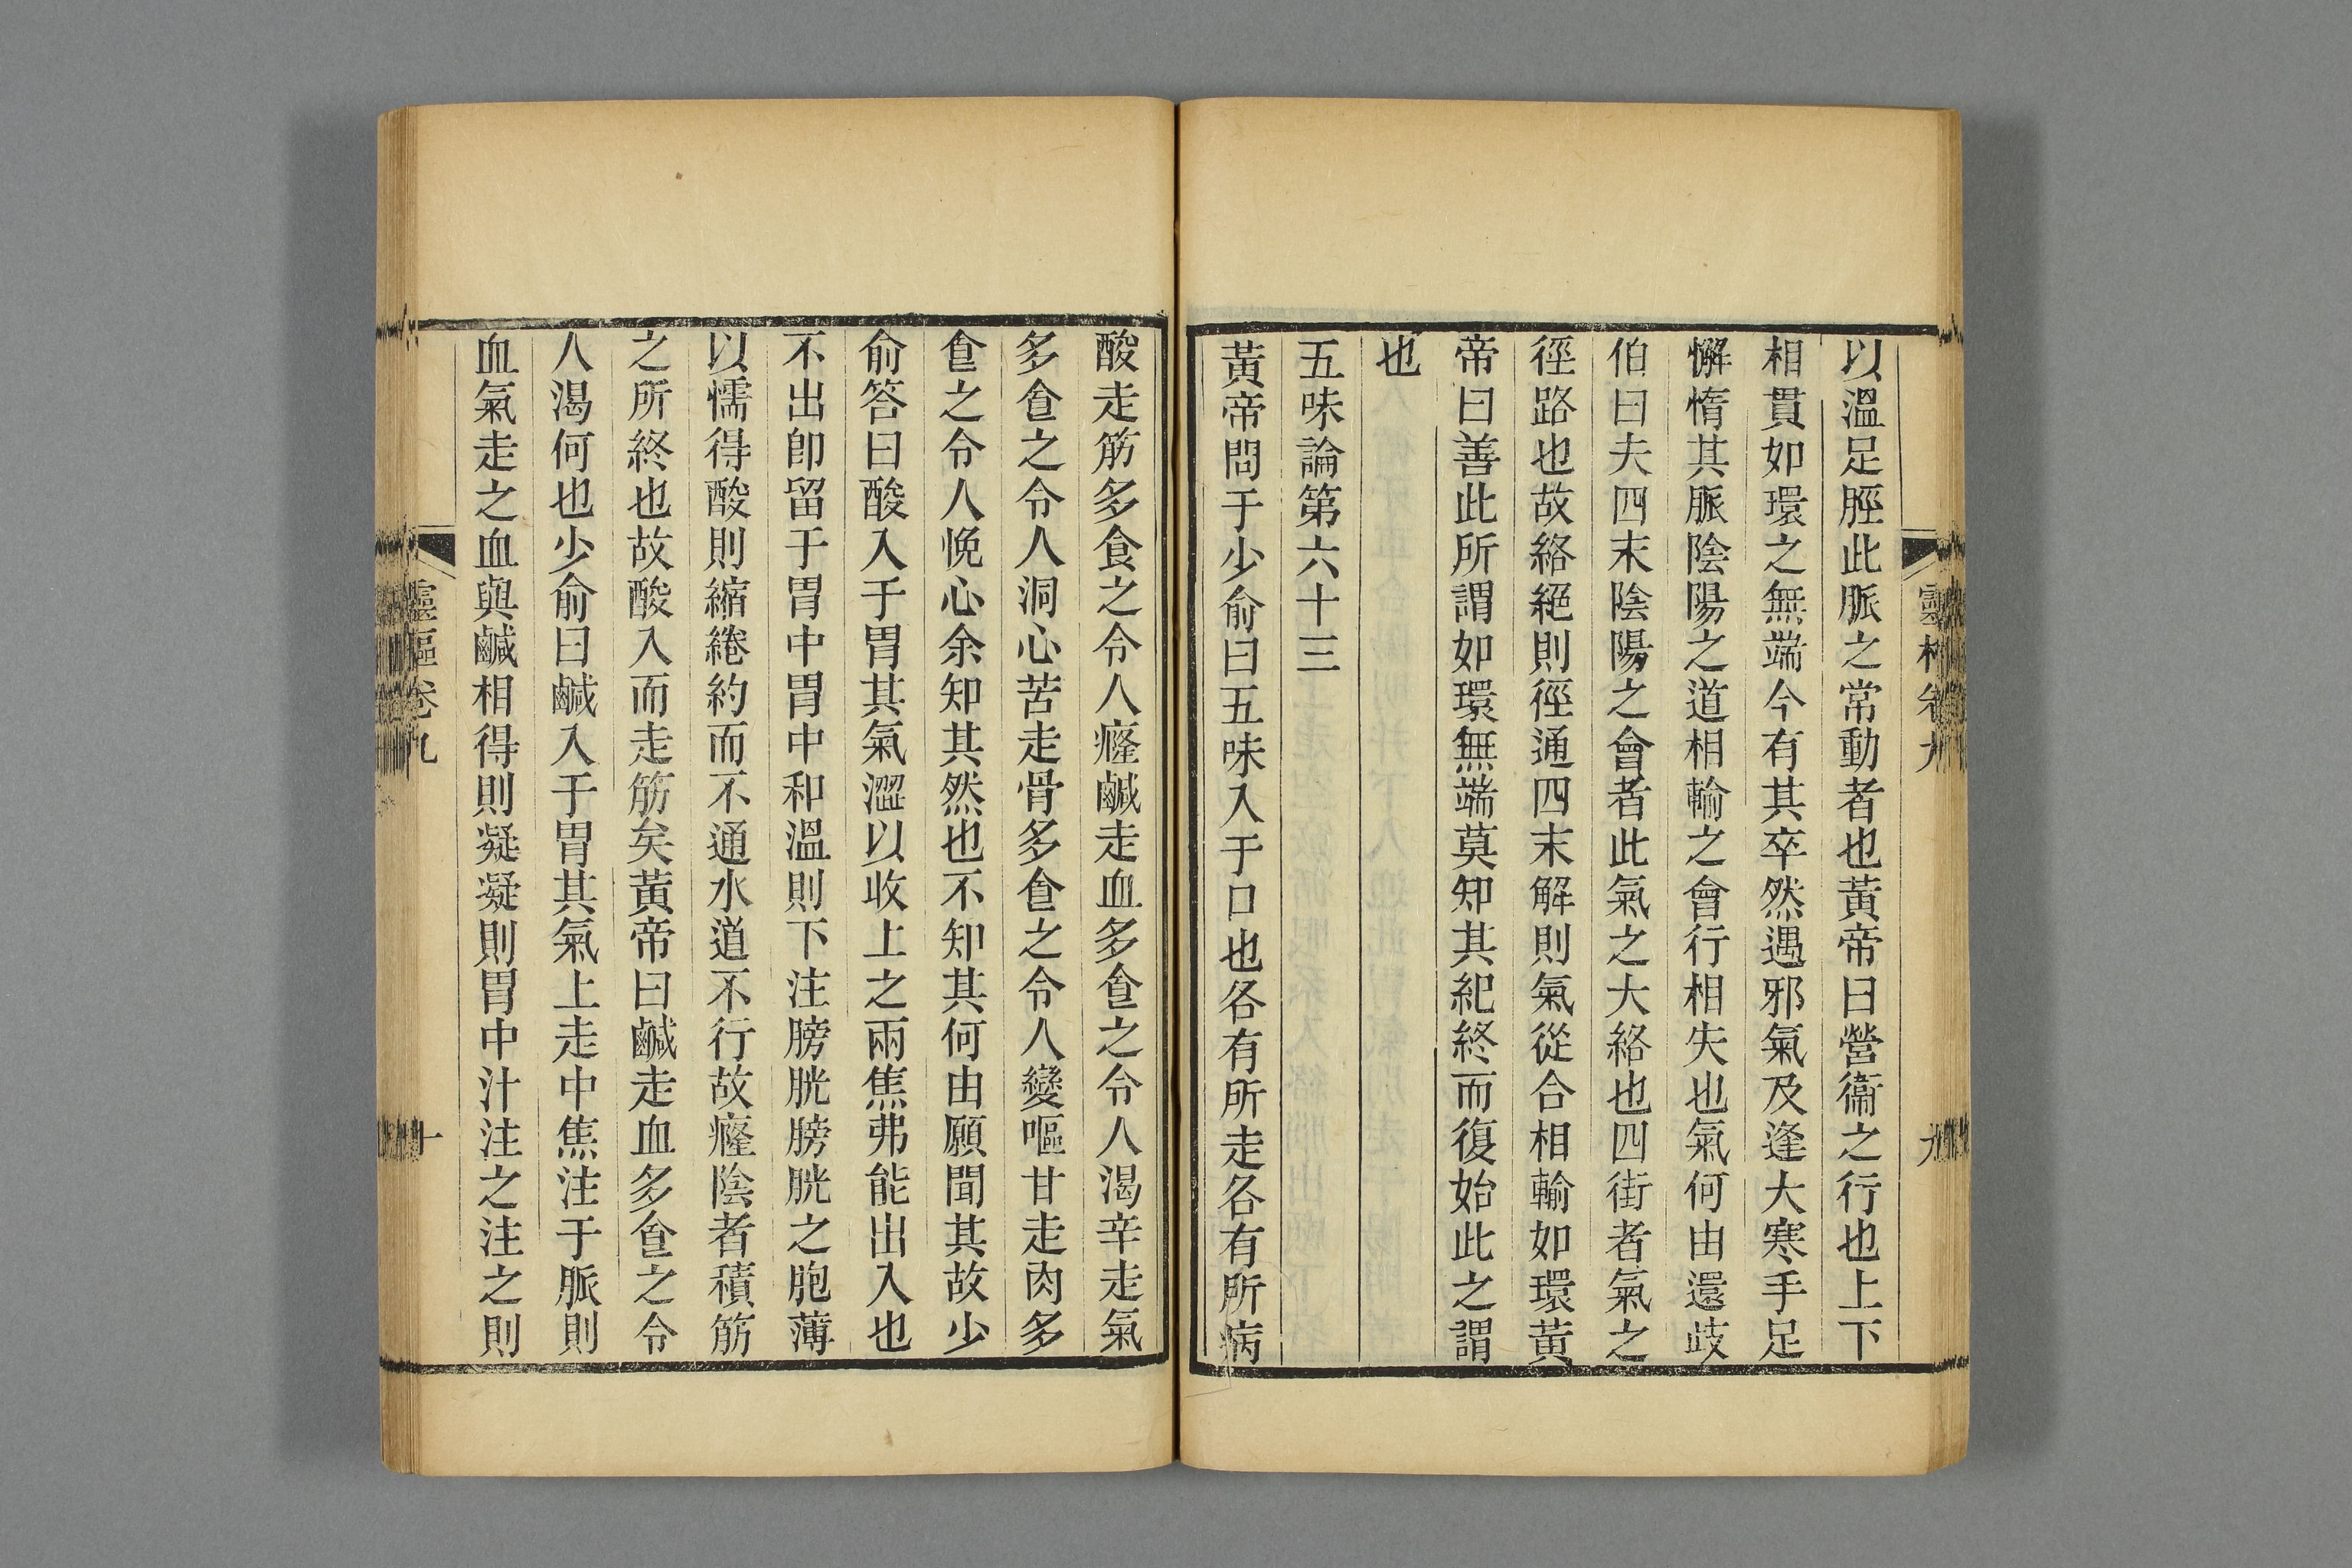 靈樞卷九
九
以溫足脛此脈之常動者也黃帝曰營衞之行也上下
相貫如環之無端今有其卒然遇邪氣及逢大寒手足
懈惰其脈陰陽之道相輸之會行相失也氣何由還歧
伯曰夫四末陰陽之會者此氣之大絡也四街者氣之
徑路也故絡絕則徑通四末解則氣從合相輸如環黃
帝曰善此所謂如環無端莫知其紀終而復始此之謂
也
五味論第六十三
黃帝問于少俞曰五味入于口也各有所走各有所病
酸走筋多食之令人癃鹹走血多食之令人渴辛走氣
多食之令人洞心苦走骨多食之令人變嘔甘走肉多
食之令人悗心余知其然也不知其何由願聞其故少
俞答曰酸入于胃其氣澀以收上之兩焦弗能出入也
不出卽留于胃中胃中和溫則下注膀胱膀胱之胞薄
以懦得酸則縮綣約而不通水道不行故癃陰者積筋
之所終也故酸入而走筋矣黃帝曰鹹走血多食之令
人渴何也少俞曰鹹入于胃其氣上走中焦注于脈則
血氣走之血與鹹相得則凝凝則胃中汁注之注之則
靈樞卷九
十